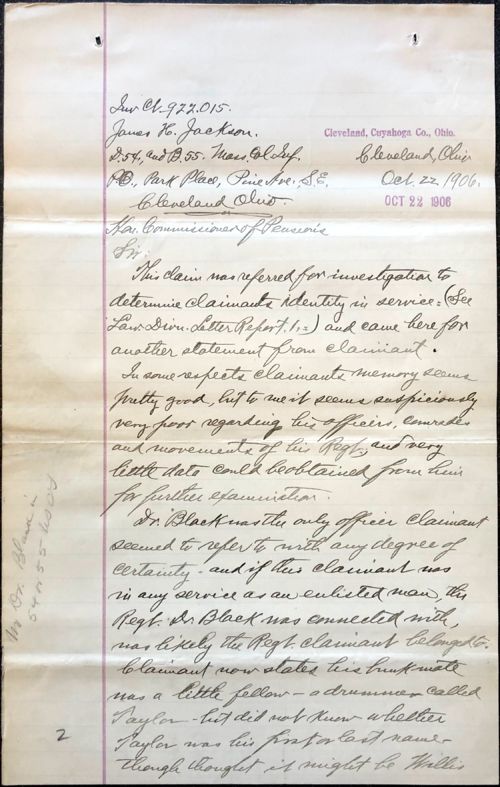 Inv Ct. 922,015.
James H. Jackson.
D.54, and B.55. Mass. Col. Inf.
P.O., Park Place, Pine Ave. S.E,
Cleveland Ohio.
Cleveland, Cuyahoga Co., Ohio.
Cleveland, Ohio
Oct. 22, 1906.
OCT 22 1906
Hon. Commissioner of Pensions
Sir:
This claim was referred for investigation to
determine claimants identity in service: (See
Law Divn. Letter Report. 1,=) and came here for
another statement from claimant.
In some respects claimants memory seems
pretty good, but to me it seems suspiciously
very poor regarding his officers, comrades
and movements of his Regt, and very
little data could be obtained from him
for further examination.
Dr. Black was the only officer claimant
seemed to refer to with any degree of
certainty - and if this claimant was
in any service as an enlisted man, the
Regt. Dr. Black was connected with,
was likely the Regt. claimant belonged to.
Claimant now states his bunk mate
was a little fellow - a drummer called
Taylor - but did not know whether
Taylor was his first or last name -
though thought it might be Wallis
No Dr. Black in
54 or 55
2